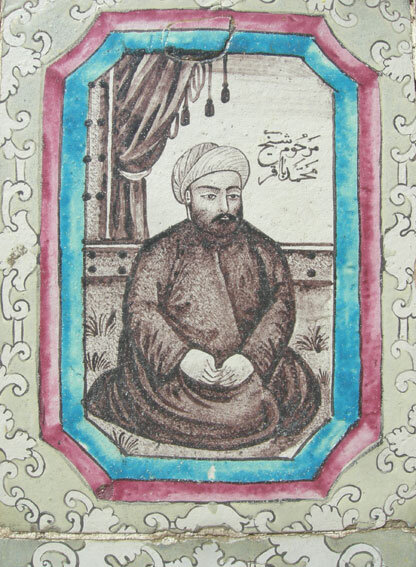 مرحوم شیخ
محمد باقر